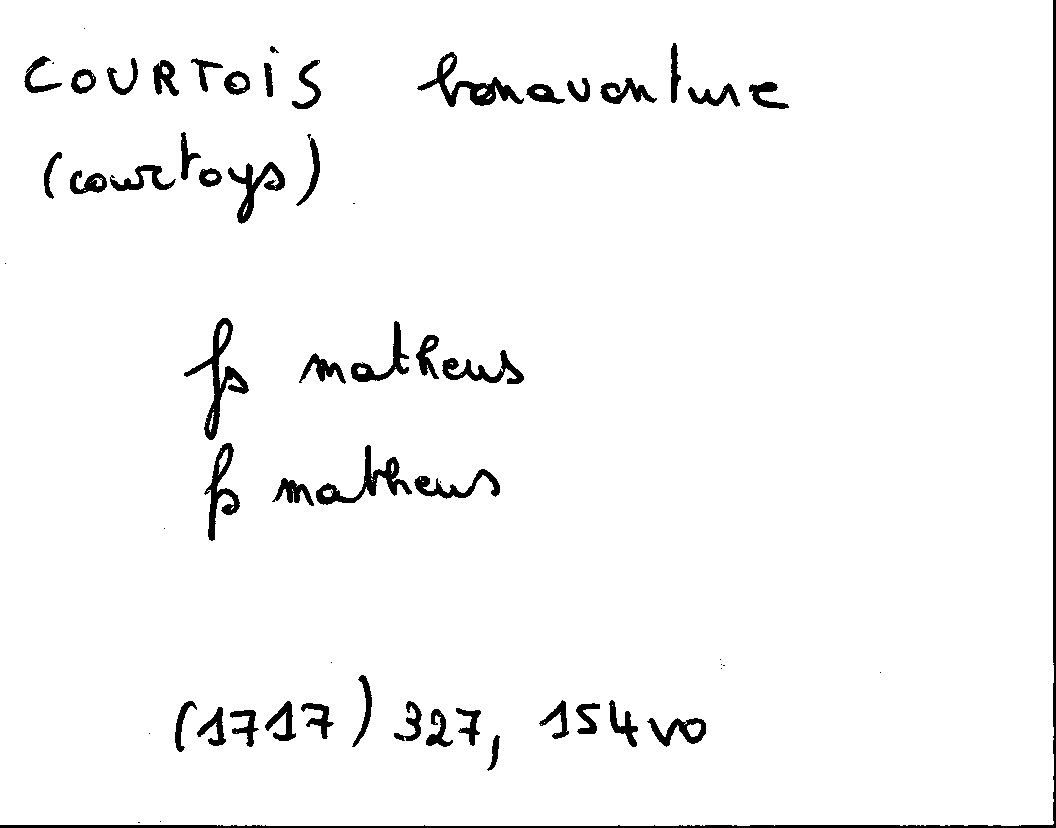 COURTOIS bonaventure
(courtoys)
fs matheus
fs matheus
(1717) 327, 154vo